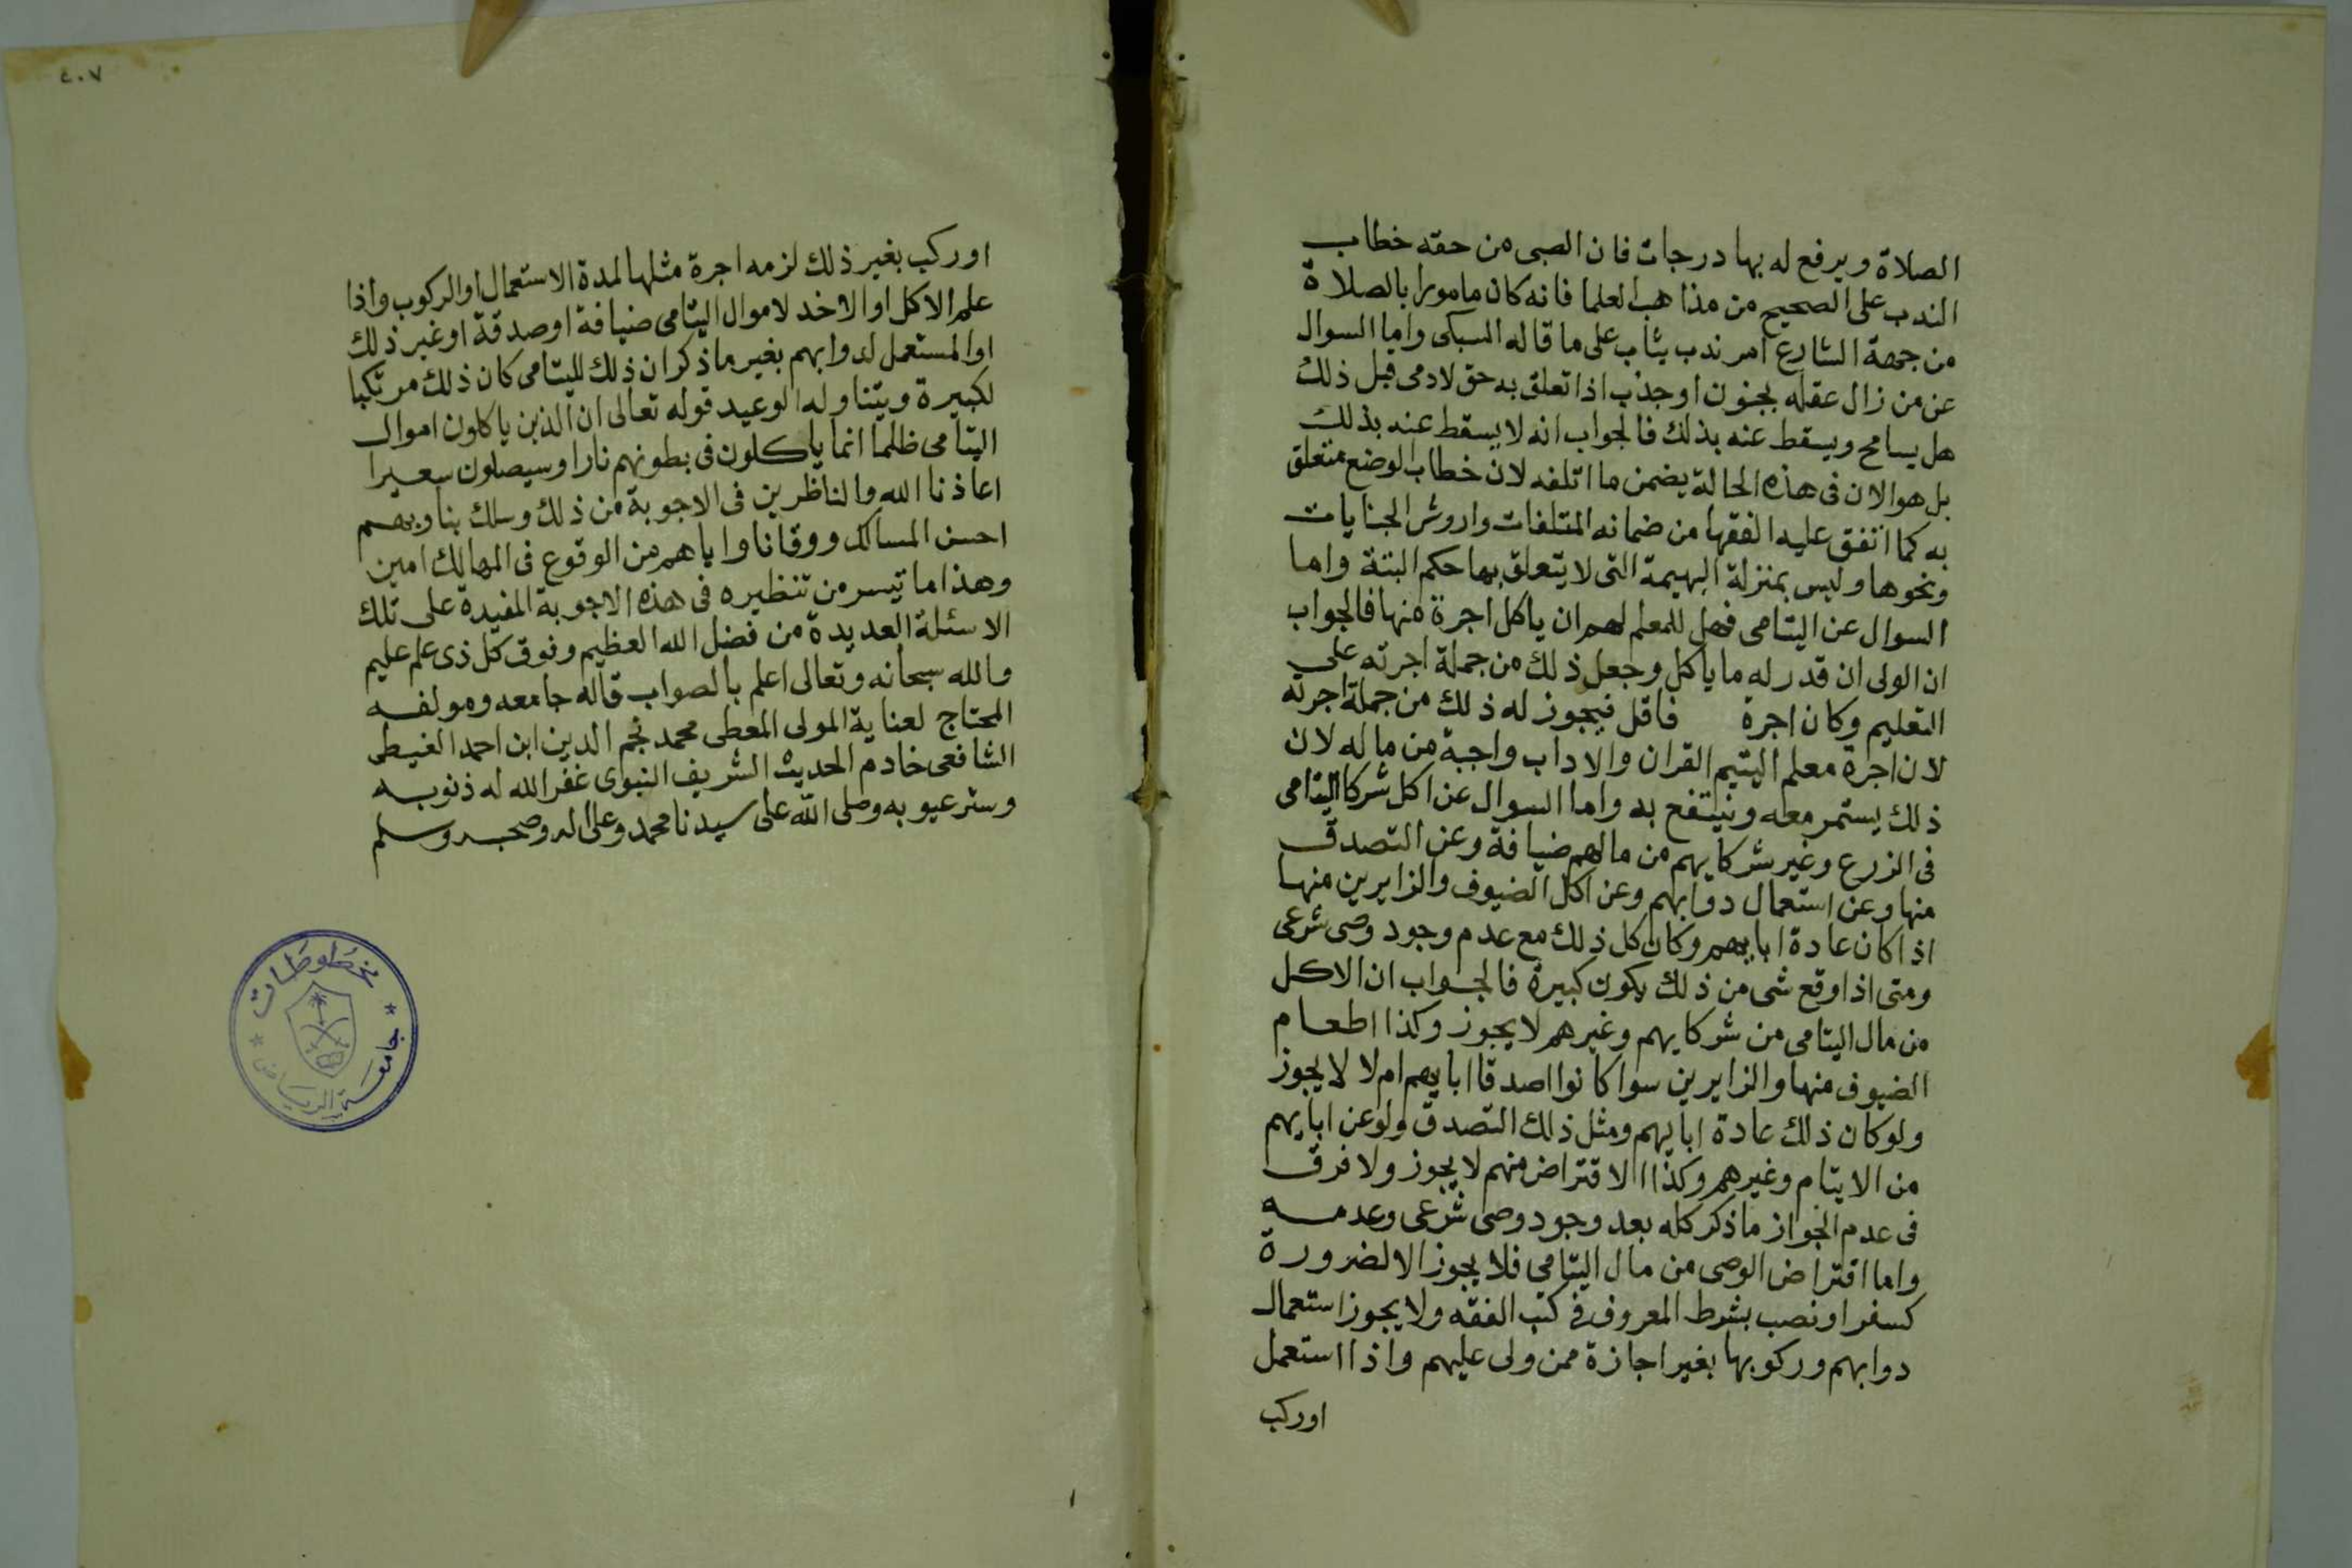 الصلاة ويرفع له بها درجات فان الصبى من حقه خطاب
الندب على الصحيح من مذاهب العلما فانه كان مامورا بالصلاة
من جهة الشارع امر ندب يثاب على ما قاله السبكى واما السوال
عن من زال عقله بجنون او جذب اذا تعلق به حق لادمى قبل ذلك
هل يسامح ويسقط عنه بذلك فالجواب انه لا يسقط عنه بذلك
بل هو الان فى هذه الحالة يضمن ما اتلفه لان خطاب الوضع متعلق
به كما اتفق عليه الفقها من ضمانه المتلفات واروش الجنايات
ونحوها وليس بمنزلة البهيمة التى لا يتعلق بها حكم البتة واما
السوال عن اليتامى فهل للمعلم لهم ان ياكل اجرة منها فالجواب
ان الولى ان قدر له ما ياكل وجعل ذلك من جملة اجرته على
التعليم وكان اجرة فاقل فيجوز له ذلك من جملة اجرته
لان اجرة معلم اليتيم القران والاداب واجبة من ماله لان
ذلك يستمر معه وينتفع به واما السوال عن اكل شركا اليتامى
فى الزرع وغير شركايهم من مالهم ضيافة وعن التصدق
منها وعن استعمال دوابهم وعن اكل الضيوف والزايرين منها
اذا كان عادة ابايهم وكان كل ذلك مع عدم وجود وصى شرعى
ومتى اذا وقع شى من ذلك يكون كبيرة فالجواب ان الاكل
من مال اليتامى من شركايهم وغيرهم لا يجوز وكذا اطعام
الضيوف منها والزايرين سوا كانوا اصدقا ابايهم ام لا لا يجوز
ولو كان ذلك عادة ابايهم ومثل ذلك التصدق ولو عن ابايهم
من الايتام وغيرهم وكذا الاقتراض منهم لا يجوز ولا فرق
فى عدم الجواز ماذكر كله بعد وجود وصى شرعى وعدمه
واما اقتراض الوصى من مال اليتامى فلا يجوز الا لضرورة
كسفر او نصب بشرط المعروف فى كتب الفقه ولا يجوز استعمال
دوابهم وركوبها بغير اجازة ممن ولى عليهم واذا استعمل
اوركب
٤٠٧
اوركب بغير ذلك لزمه اجرة مثلها لمدة الاستعمال او الركوب واذا
علم الاكل او الاخد لاموال اليتامى ضيافة او صدقة او غير ذلك
او المستعمل لدوابهم بغير ماذكر ان ذلك لليتامى كان ذلك مرتكبا
لكبيرة ويتناوله الوعيد قوله تعالى ان الذين ياكلون اموال
اليتامى ظلما انما ياكلون فى بطونهم نارا وسيصلون سعيرا
اعاذنا الله والناظرين فى الاجوبة من ذلك وسلك بنا وبهم
احسن المسالك ووقانا واياهم من الوقوع فى المهالك امين
وهذا ما تيسر من تنظيره فى هذه الاجوبة المفيدة على تلك
الاسئلة العديدة من فضل الله العظيم وفوق كل ذى علم عليم
والله سبحانه وتعالى اعلم بالصواب قاله جامعه ومولفه
المحتاج لعناية المولى المعطى محمد نجم الدين ابن احمد الغيطى
الشافعى خادم الحديث الشريف النبوى غفر الله له ذنوبه
وستر عيوبه وصلى الله على سيدنا محمد وعلى اله وصحبه وسلم
مخطوطات
جامعة الرياض